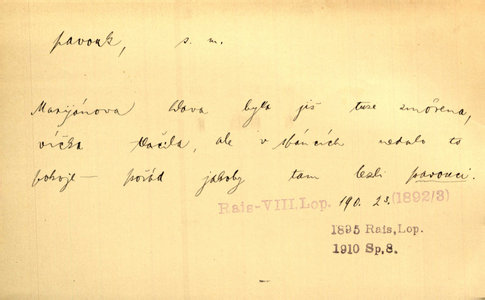 pavouk, s. m.
Marijánova hlava byla již tuze zmořena,
víčka tlačila, ale v spáncích nedalo to
pokoje — pořád jakoby tam lezli pavouci.
Rais-VIII, Lop. 190. 23. (1892/3)
1895 Rais, Lop.
1910 Sp, 8.